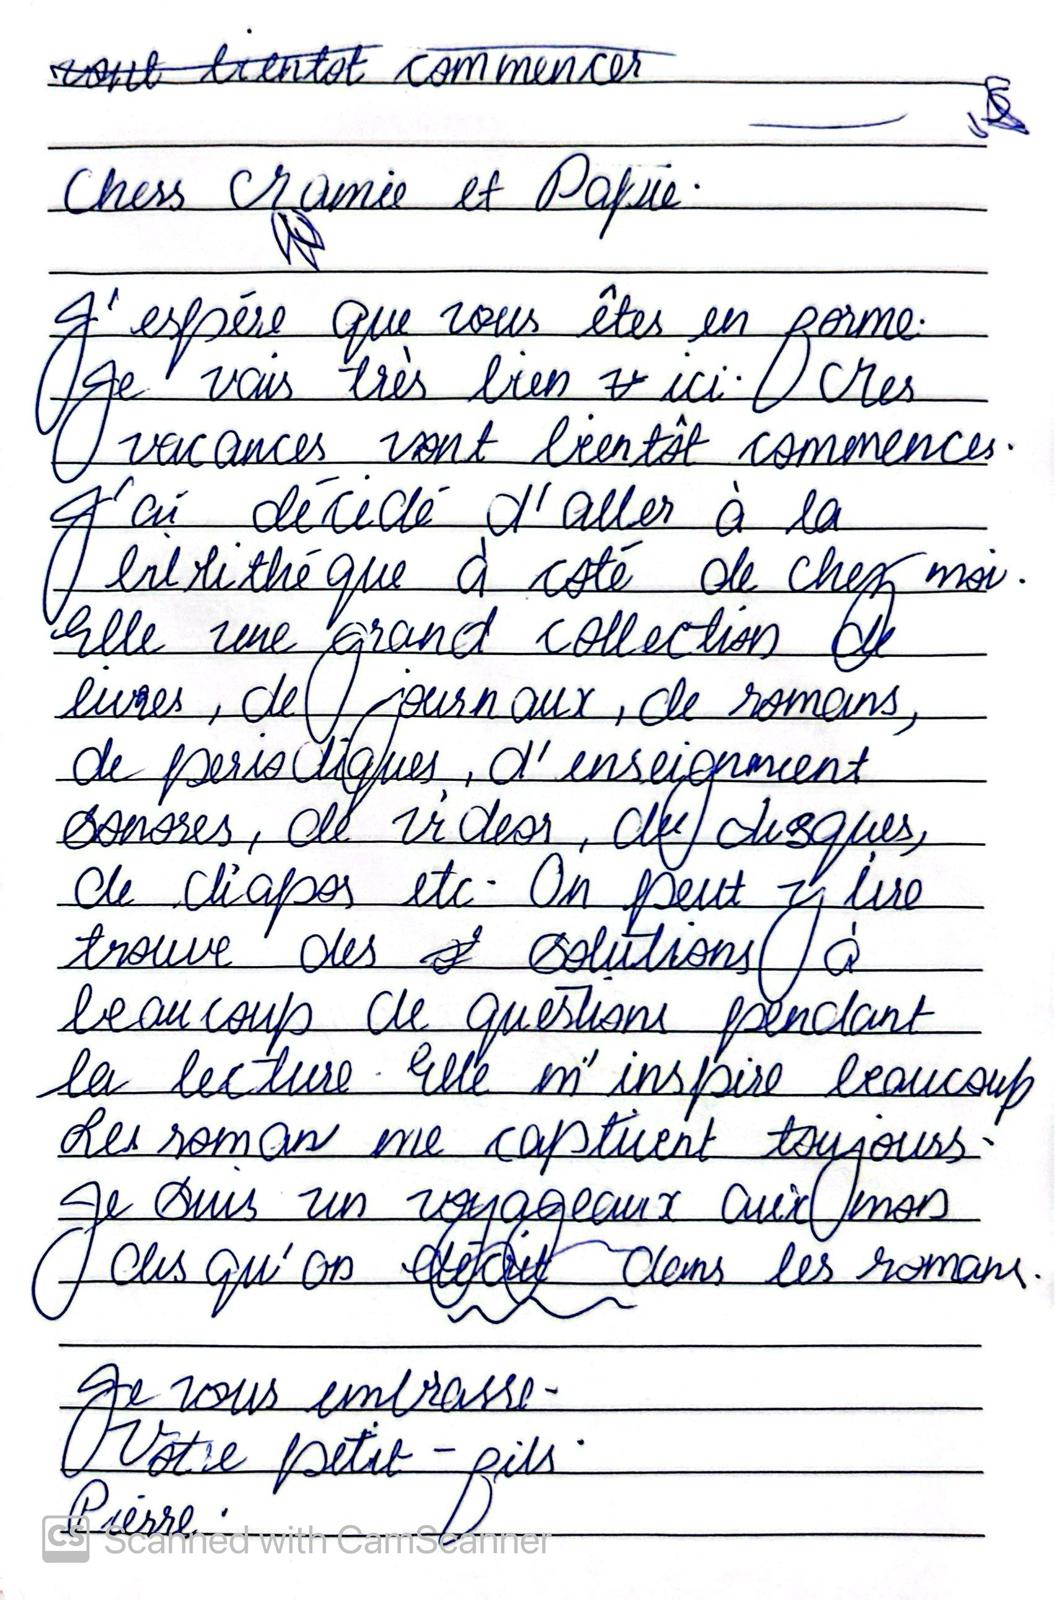 vont bientot commencer
Chers Mamie et Papie.
J'espére que vous êtes en forme.
Je vais très bien ici. Mes
vacances vont bientôt commences.
J'ai décidé d'aller à la
biblithéque à coté de chez moi.
Elle une grand collection de
livres, de journaux, de romans,
de periodiques, d'enseignment
sonores, de videos, de disques,
de diapos etc. On peut y lire
trouve des solutions à
beaucoup de questions pendant
la lecture. Elle m'inspire beaucoup
Les roman me captivent toujours.
Je suis un voyageaux aux mon
des qu'on décrit dans les romans.
Je vous embrasse.
Votre petit-fils.
Pierre.
CS Scanned with CamScanner